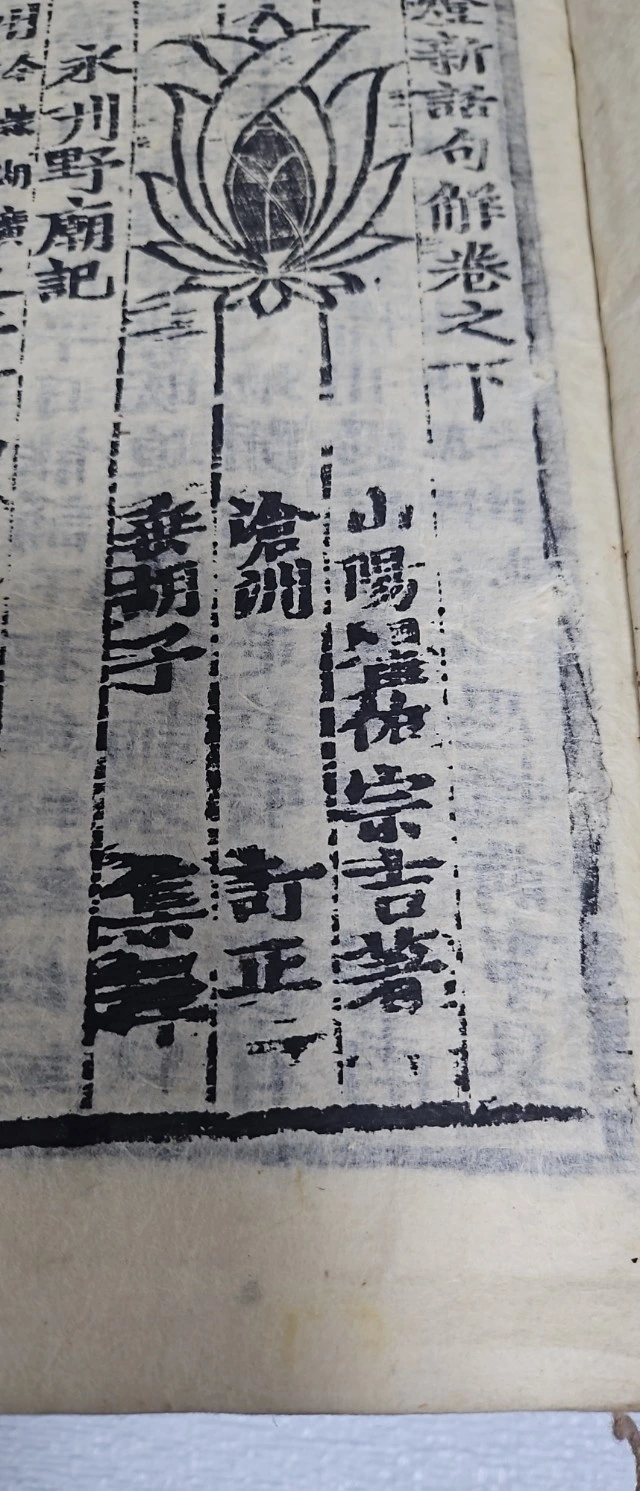 燈新話句解卷之下
山陽瞿佑宗吉著
滄洲 訂正
垂胡子 集釋
永州野廟記